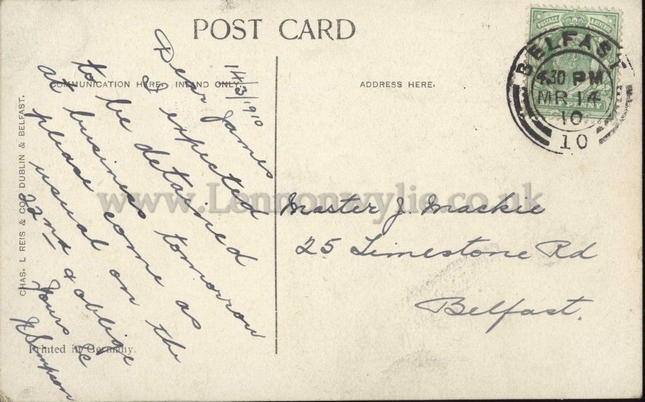 POST CARD
COMMUNICATION HERE, INLAND ONLY.
ADDRESS HERE.
14/3/1910
Dear James
I expected
to be detained
at business tomorrow
please come as
usual on the
22nd & oblige
Yours &c
Simpson
Master J. Mackie
25 Limestone Rd
Belfast.
BELFAST
4.30 PM
MR 14
10
10
PENNY
CHAS. L REIS & CO. DUBLIN & BELFAST.
Printed in Germany.
www.Lennonwylie.co.uk